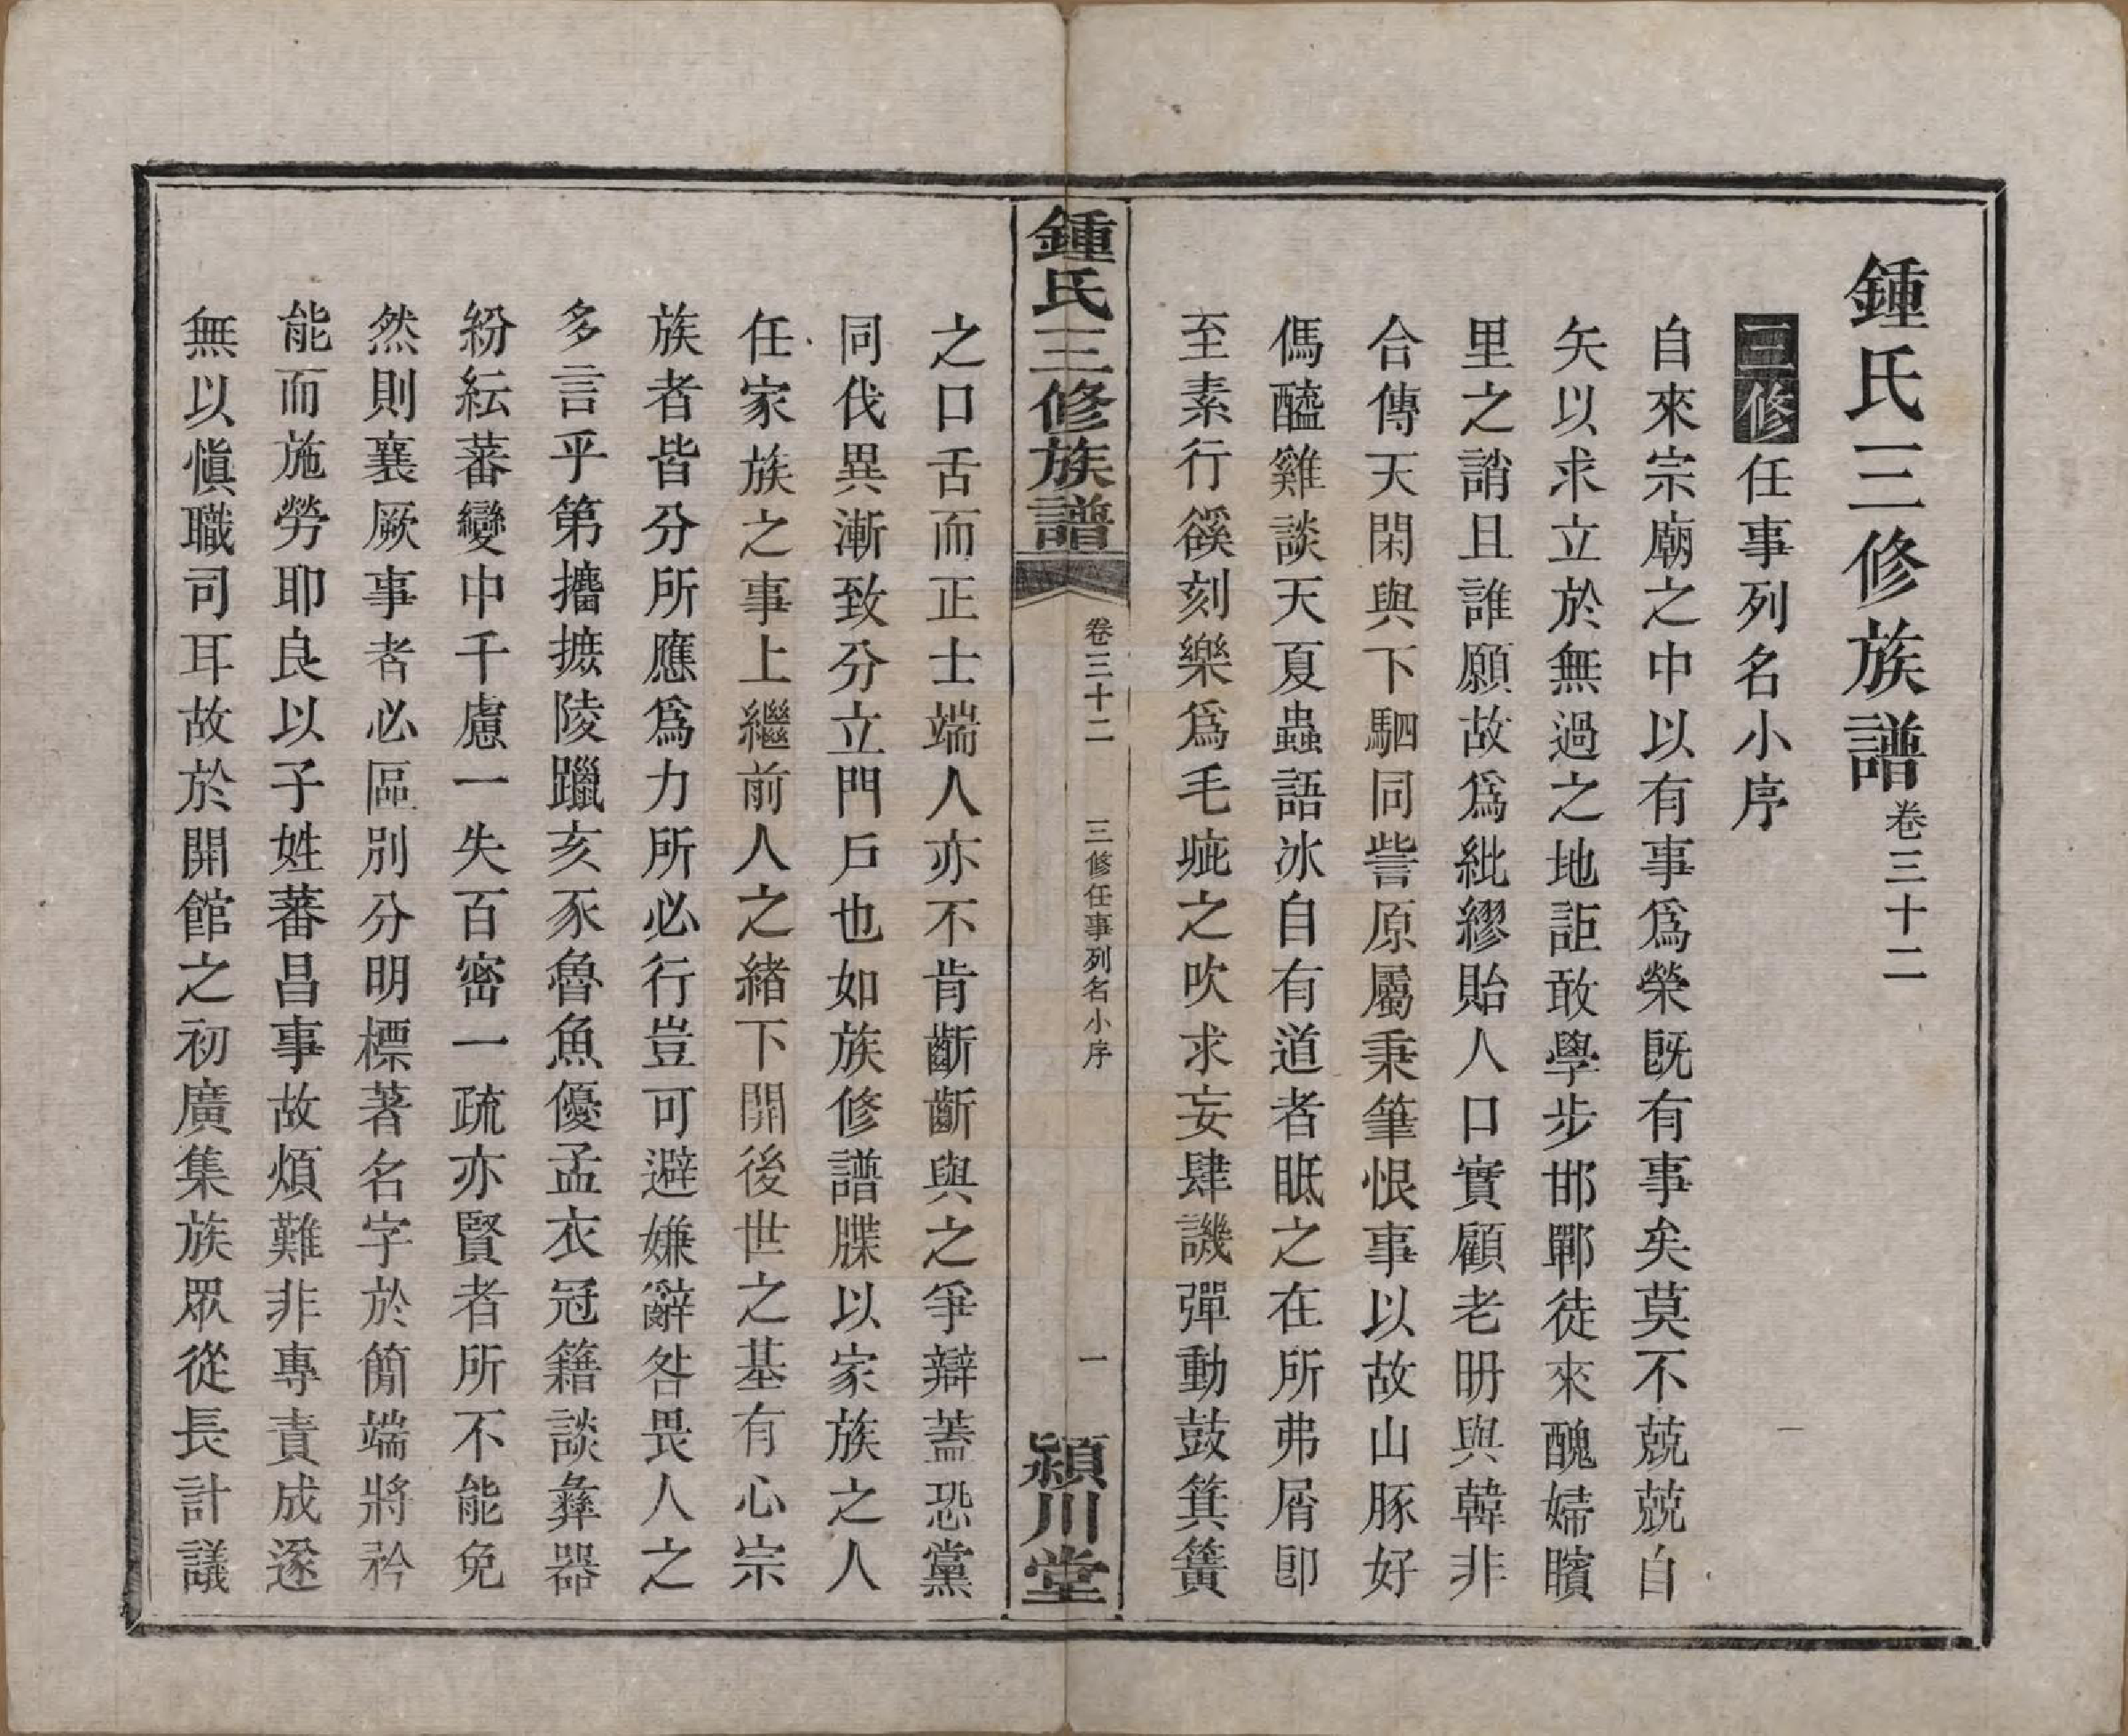 鍾氏三修族譜卷三十二
三修任事列名小序
自來宗廟之中以有事爲榮既有事矣莫不兢兢自
矢以求立於無過之地詎敢學步邯鄲徒來醜婦矉
里之誚且誰願故爲紕繆貽人口實顧老聃與韓非
合傳天閑與下駟同訾原屬秉筆恨事以故山豚好
傌醯雞談天夏蟲語冰自有道者眡之在所弗屑卽
至素行徯刻樂爲毛疵之吹求妄肆譏彈動鼓箕簧
鍾氏三修族譜
卷三十二
三修任事列名小序
一
潁川堂
之口舌而正士端人亦不肯齗齗與之爭辯蓋恐黨
同伐異漸致分立門戶也如族修譜牒以家族之人
任家族之事上繼前人之緒下開後世之基有心宗
族者皆分所應爲力所必行豈可避嫌辭咎畏人之
多言乎第攟摭陵躐亥豕魯魚優孟衣冠籍談彝器
紛紜蕃變中千慮一失百密一疏亦賢者所不能免
然則襄厥事者必區別分明標著名字於簡端將矜
能而施勞耶良以子姓蕃昌事故煩難非專責成遂
無以愼職司耳故於開館之初廣集族眾從長計議